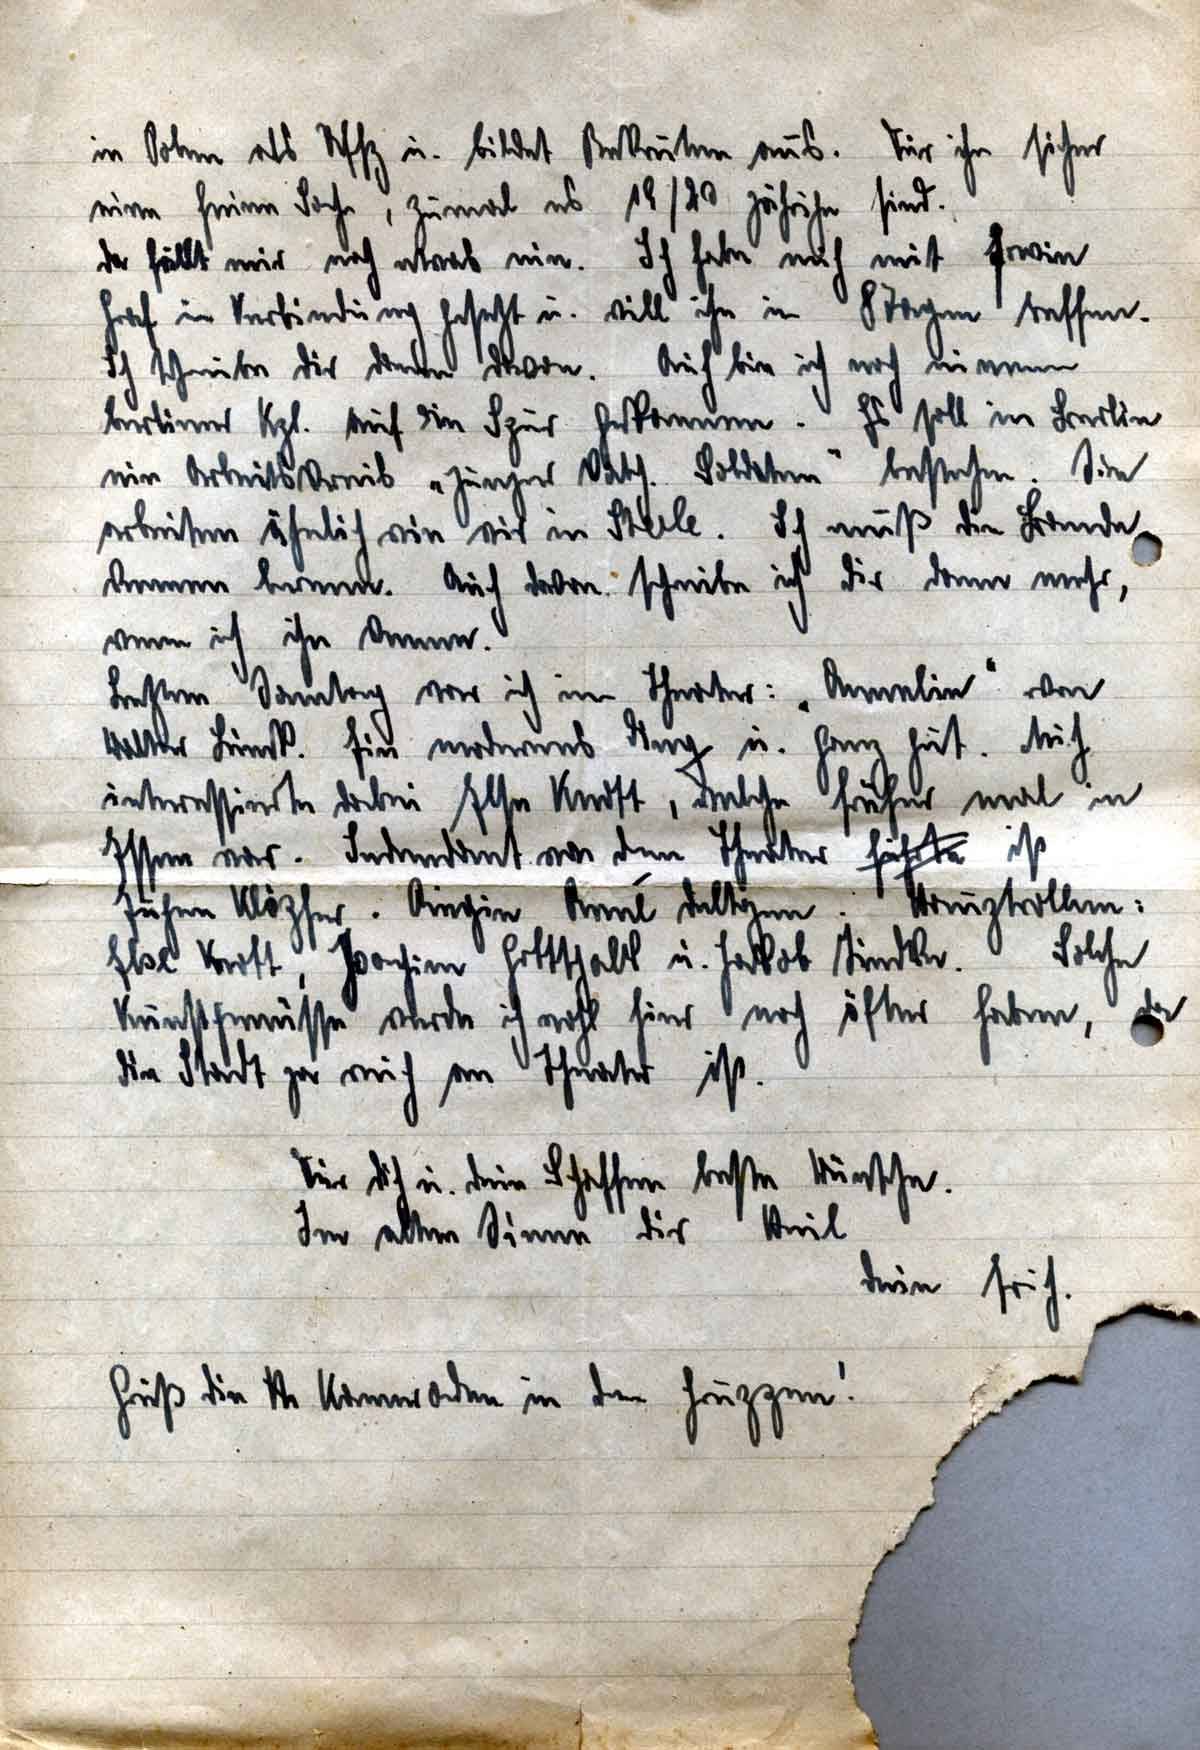 in Polen als Uffz u. bildet Rekruten aus. Für ihn sicher
eine feine Sache, zumal es 19/20 jährige sind.
da fällt mir noch etwas ein. Ich habe mich mit Erwin
Graf in Verbindung gesetzt u. will ihn in 8 Tagen treffen.
Ich schreibe dir dann davon. Auch bin ich noch einem
berliner Kpl. auf die Spur gekommen. Es soll in Berlin
ein Arbeitskreis „junger kath. Soldaten" bestehen. Sie
arbeiten ähnlich wie wir in Steele. Ich muß die Bande
kennen lernen. Auch davon schreibe ich dir dann mehr,
wenn ich ihn kenne.
Letzten Sonntag war ich im Theater: „ " von
Walter . Ein modernes Ding u. ganz gut. Mich
interessierte dabei Ilse Kraft, welche früher mal in
Essen war. Intendant von dem Theater führte ist
Eugen Klöpfer. Regie Raul . Hauptrollen:
Ilse Kraft, Joachim Gottschalk u. Jakob Tiedtke. Solche
Kunstgenüsse werde ich wohl hier noch öfter haben, da
die Stadt ja reich an Theater ist.
Für dich u. dein Schaffen beste Wünsche.
Im alten Sinne dir Heil
dein Erich.
Grüß die Kameraden in den Gruppen!